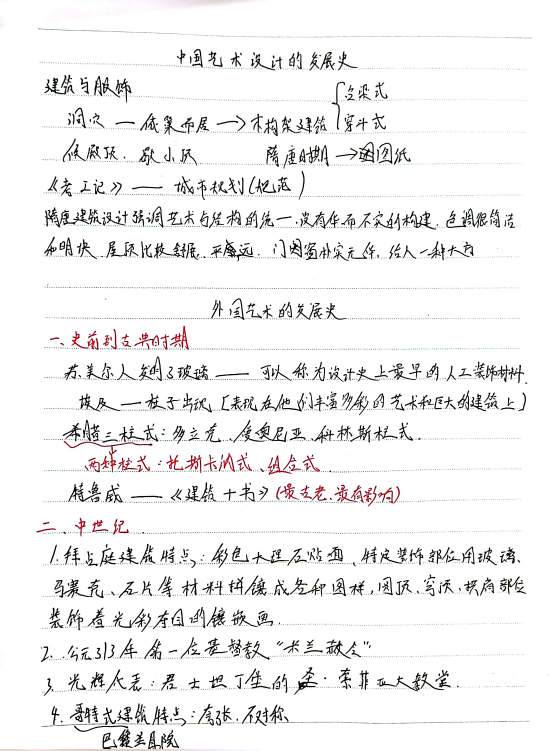 中国艺术设计的发展史
建筑与服饰
洞穴 — 依巢而居 → 木构架建筑 { 抬梁式 穿斗式
隋唐时期 → 图纸
《考工记》 —— 城市规划(规范)
隋唐建筑设计强调艺术与结构的统一.没有华而不实的构建.色调很简洁
和明快.屋顶比较舒展、平远.门窗朴实无华,给人一种大方
外国艺术的发展史
一、史前到古典时期
苏美尔人发明了玻璃 —— 可以称为设计史上最早的人工装饰材料.
埃及 — 柱子出现 [表现在他们丰富多彩的艺术和巨大的建筑上]
希腊三柱式:多立克、爱奥尼亚、科林斯柱式.
两种柱式:托斯卡纳式、组合式.
维特鲁威 ——《建筑十书》(最古老、最有影响)
二、中世纪
1.拜占庭建筑特点:彩色大理石贴面、特定装饰部位用玻璃、
马赛克、石片等材料拼镶成各种图样,圆顶、穹顶、拱肩部位
装饰着光彩夺目的镶嵌画.
2.公元313年第一位基督教“米兰赦令”
3.光辉代表:君士坦丁堡的圣·索菲亚大教堂.
4.哥特式建筑特点:夸张、不对称
巴黎圣母院